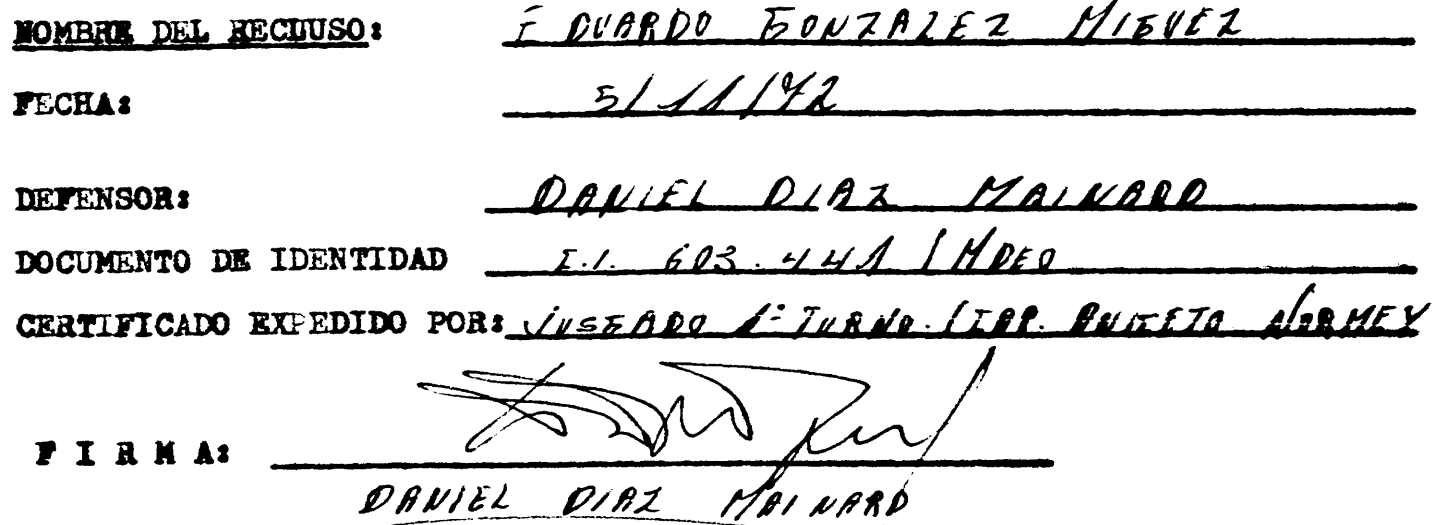 NOMBRE DEL RECLUSO: EDUARDO GONZALEZ MIGUEZ
FECHA: 5/11/72
DEFENSOR: DANIEL DIAZ MAINARD
DOCUMENTO DE IDENTIDAD C.I. 603.441 / MDEO
CERTIFICADO EXPEDIDO POR: JUSGADO 1º TURNO. CAP. ANICETO NORMEY
FIRMA:
DANIEL DIAZ MAINARD